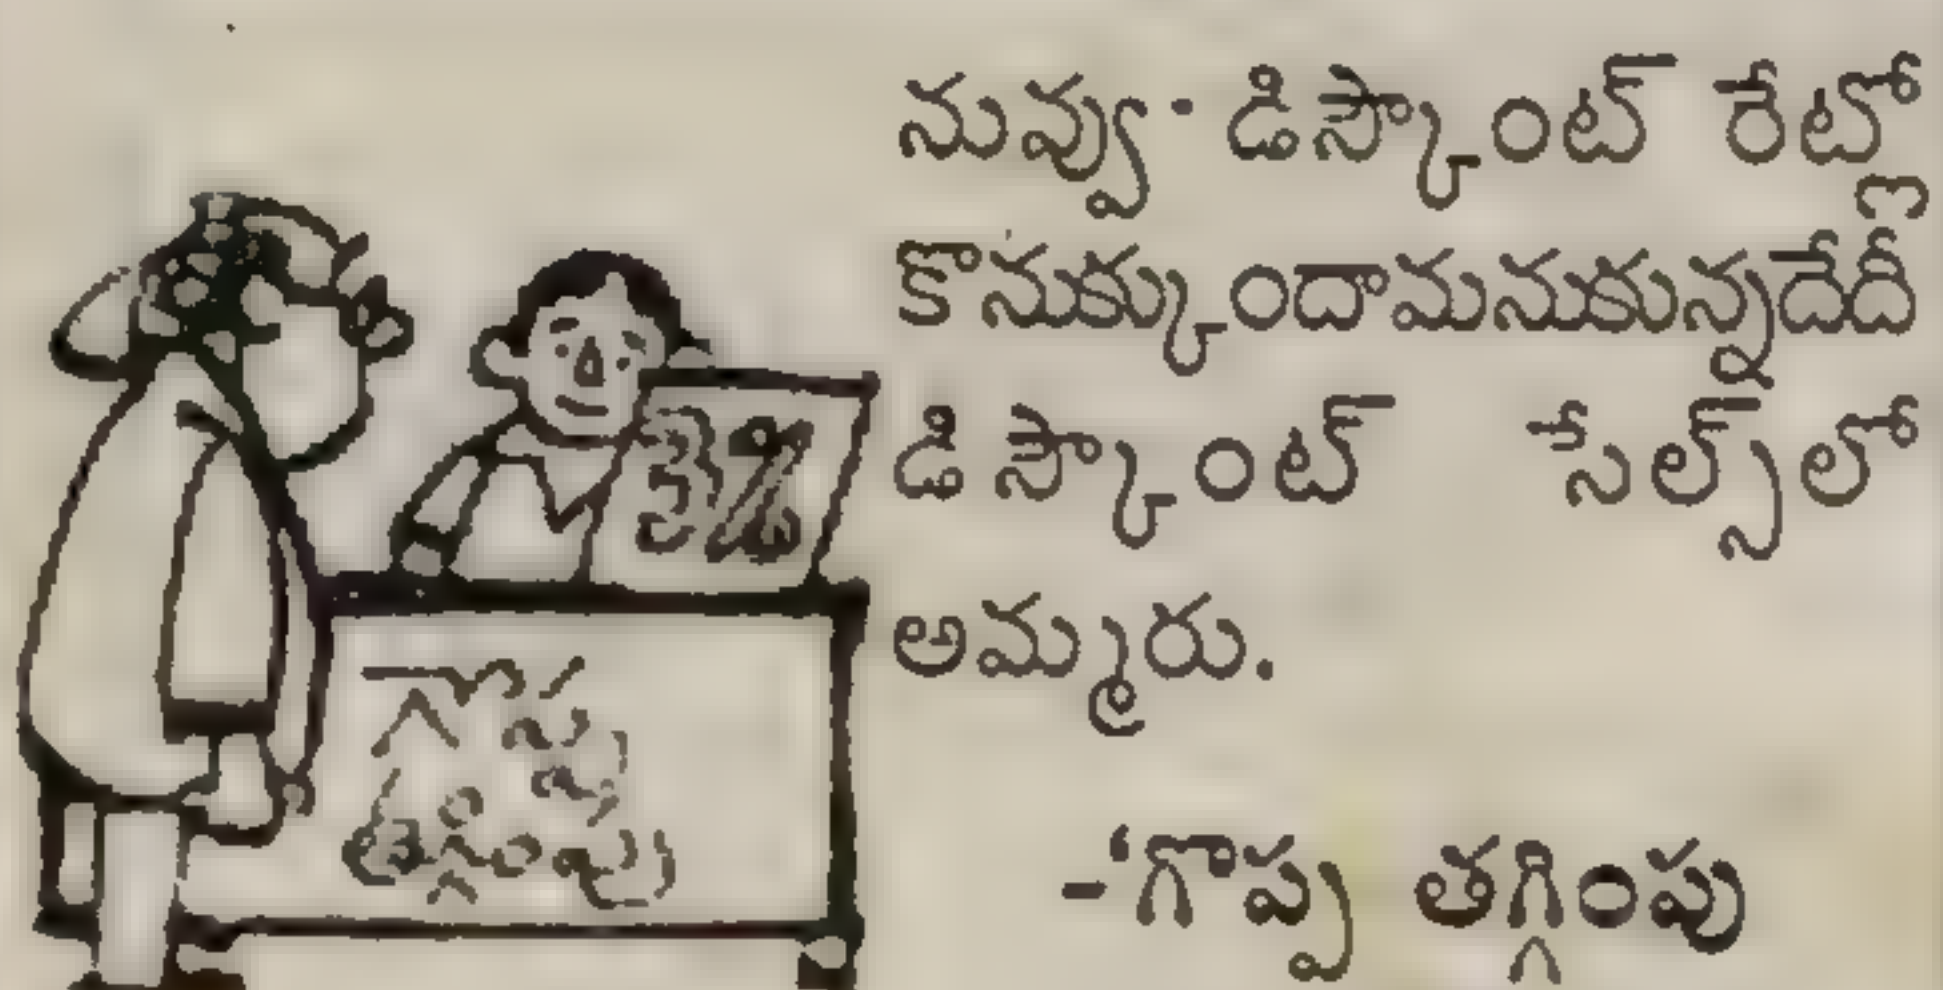 నువ్వు డిస్కౌంట్ రేట్లో
కొనుక్కుందామనుకున్నదేదీ
డిస్కౌంట్ సేల్స్‌లో
అమ్మరు.
-'గొప్ప తగ్గింపు
3%
గొప్ప
తగ్గింపు